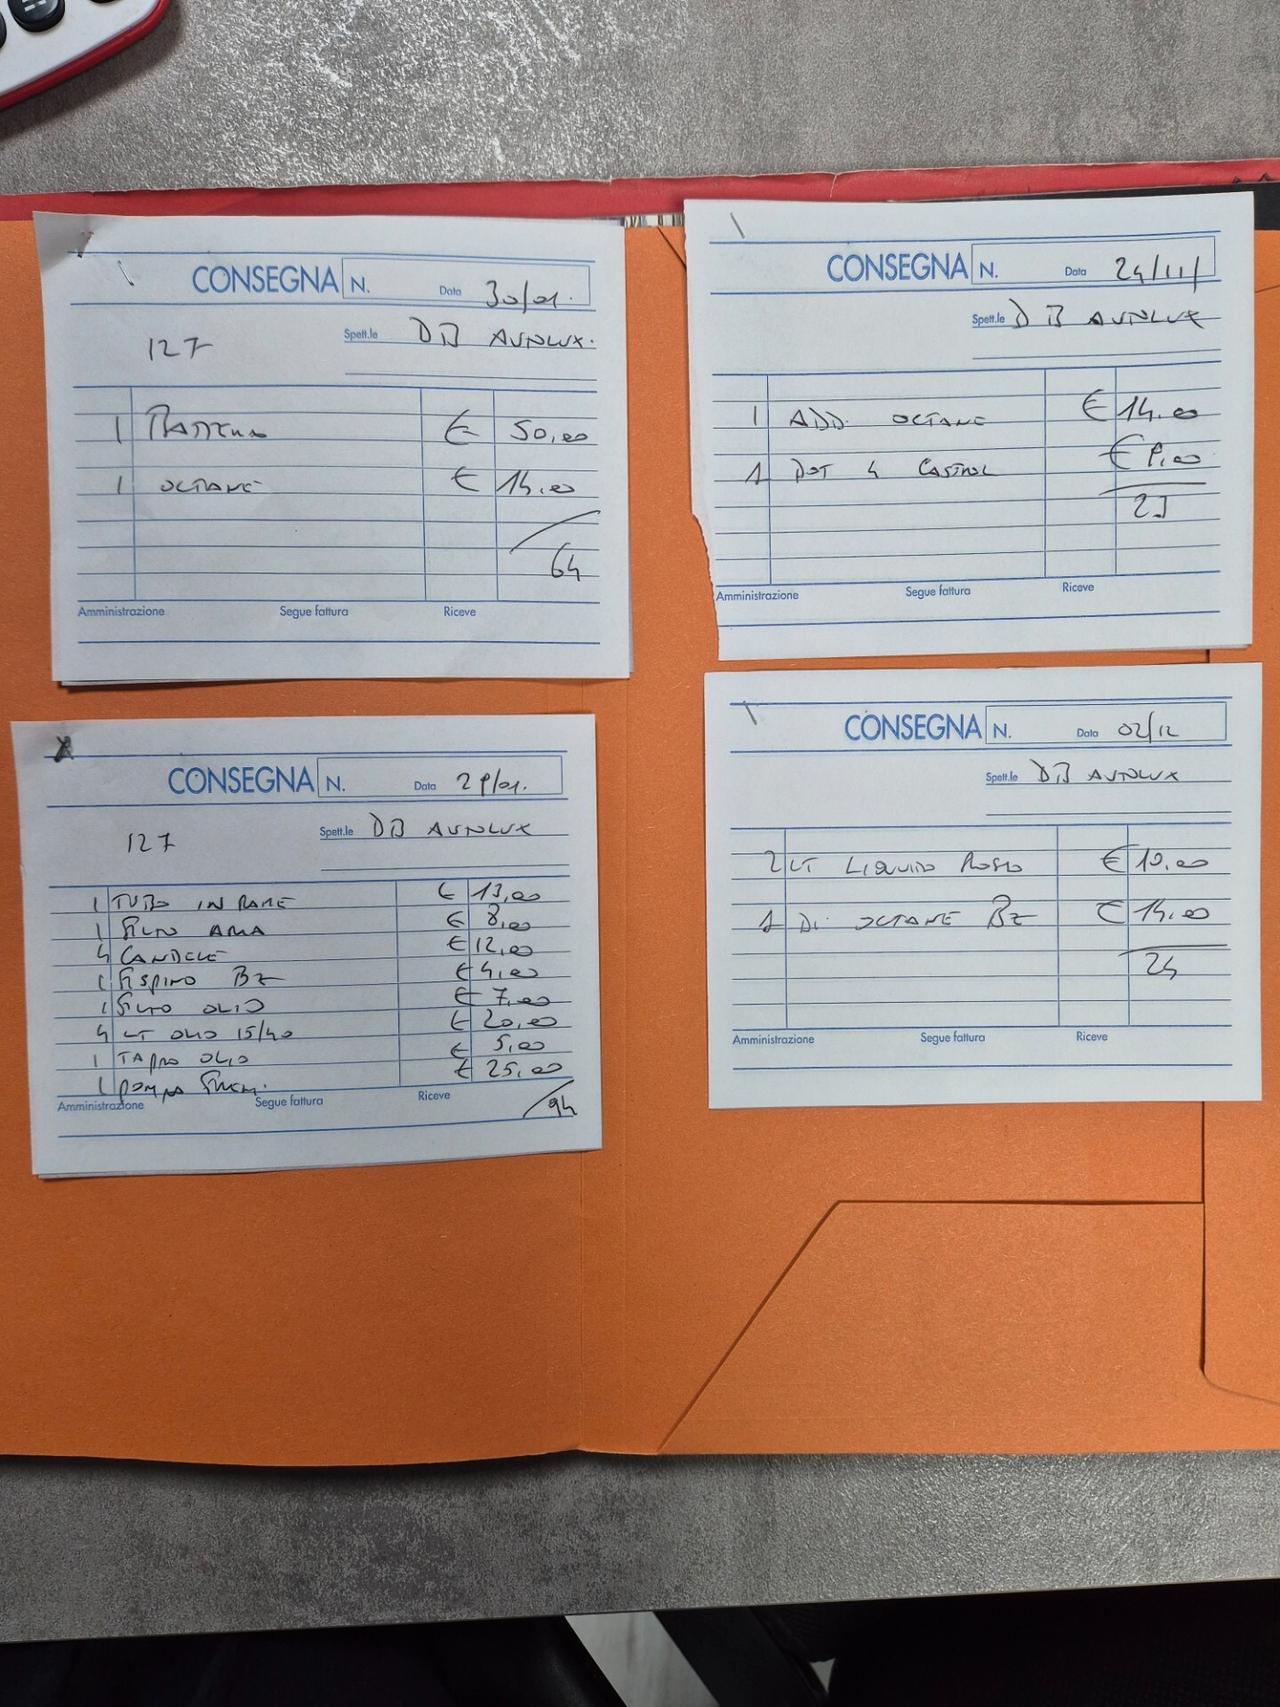 CONSEGNA N. Data 30/01.
127 Spett.le DB AUTOLUX.
1 BATTERIA € 50,00
1 OCTANE € 14,00
64
Amministrazione Segue fattura Riceve
CONSEGNA N. Data 24/11/
Spett.le DB AUTOLUX
1 ADD. OCTANE € 14.00
1 DOT 4 CASTROL € 9,00
23
Amministrazione Segue fattura Riceve
CONSEGNA N. Data 29/01.
127 Spett.le DB AUTOLUX
1 TUBO IN RAME € 13,00
1 FILTRO ARIA € 8,00
4 CANDELE € 12,00
1 BZ € 4,00
1 FILTRO OLIO € 7,00
4 LT OLIO 15/40 € 20,00
1 TAPPO OLIO € 5,00
1 POMPA € 25,00
Amministrazione Segue fattura Riceve
94
CONSEGNA N. Data 02/12
Spett.le DB AUTOLUX
2 LT LIQUIDO ROSSO € 10,00
1 Di OCTANE BZ € 14,00
24
Amministrazione Segue fattura Riceve